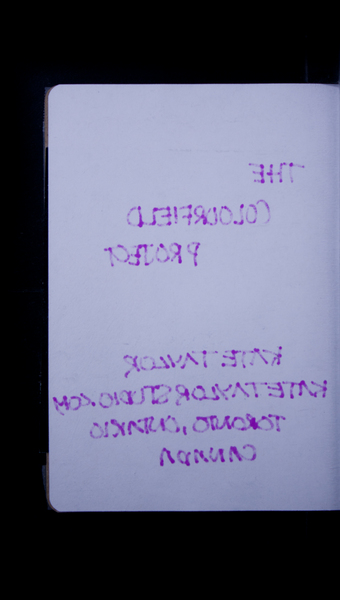 THE
COLOURFIELD
PROJECT
KATE TAYLOR
KATETAYLORSTUDIO.COM
TORONTO, ONTARIO
CANADA